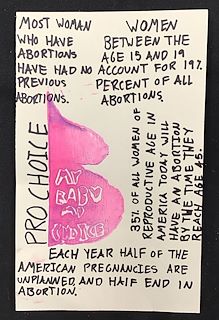 MOST WOMAN
WHO HAVE
ABORTIONS
HAVE HAD NO
PREVIOUS
ABORTIONS.
WOMEN
BETWEEN THE
AGE 15 AND 19
ACCOUNT FOR 19%
PERCENT OF ALL
ABORTIONS.
PRO CHOICE
MY
BABY
MY
CHOICE
35% OF ALL WOMEN OF
REPRODUCTIVE AGE IN
AMERICA TODAY WILL
HAVE AN ABORTION
BY THE TIME THEY
REACH AGE 45.
EACH YEAR HALF OF THE
AMERICAN PREGNANCIES ARE
UNPLANNED AND HALF END IN
ABORTION.